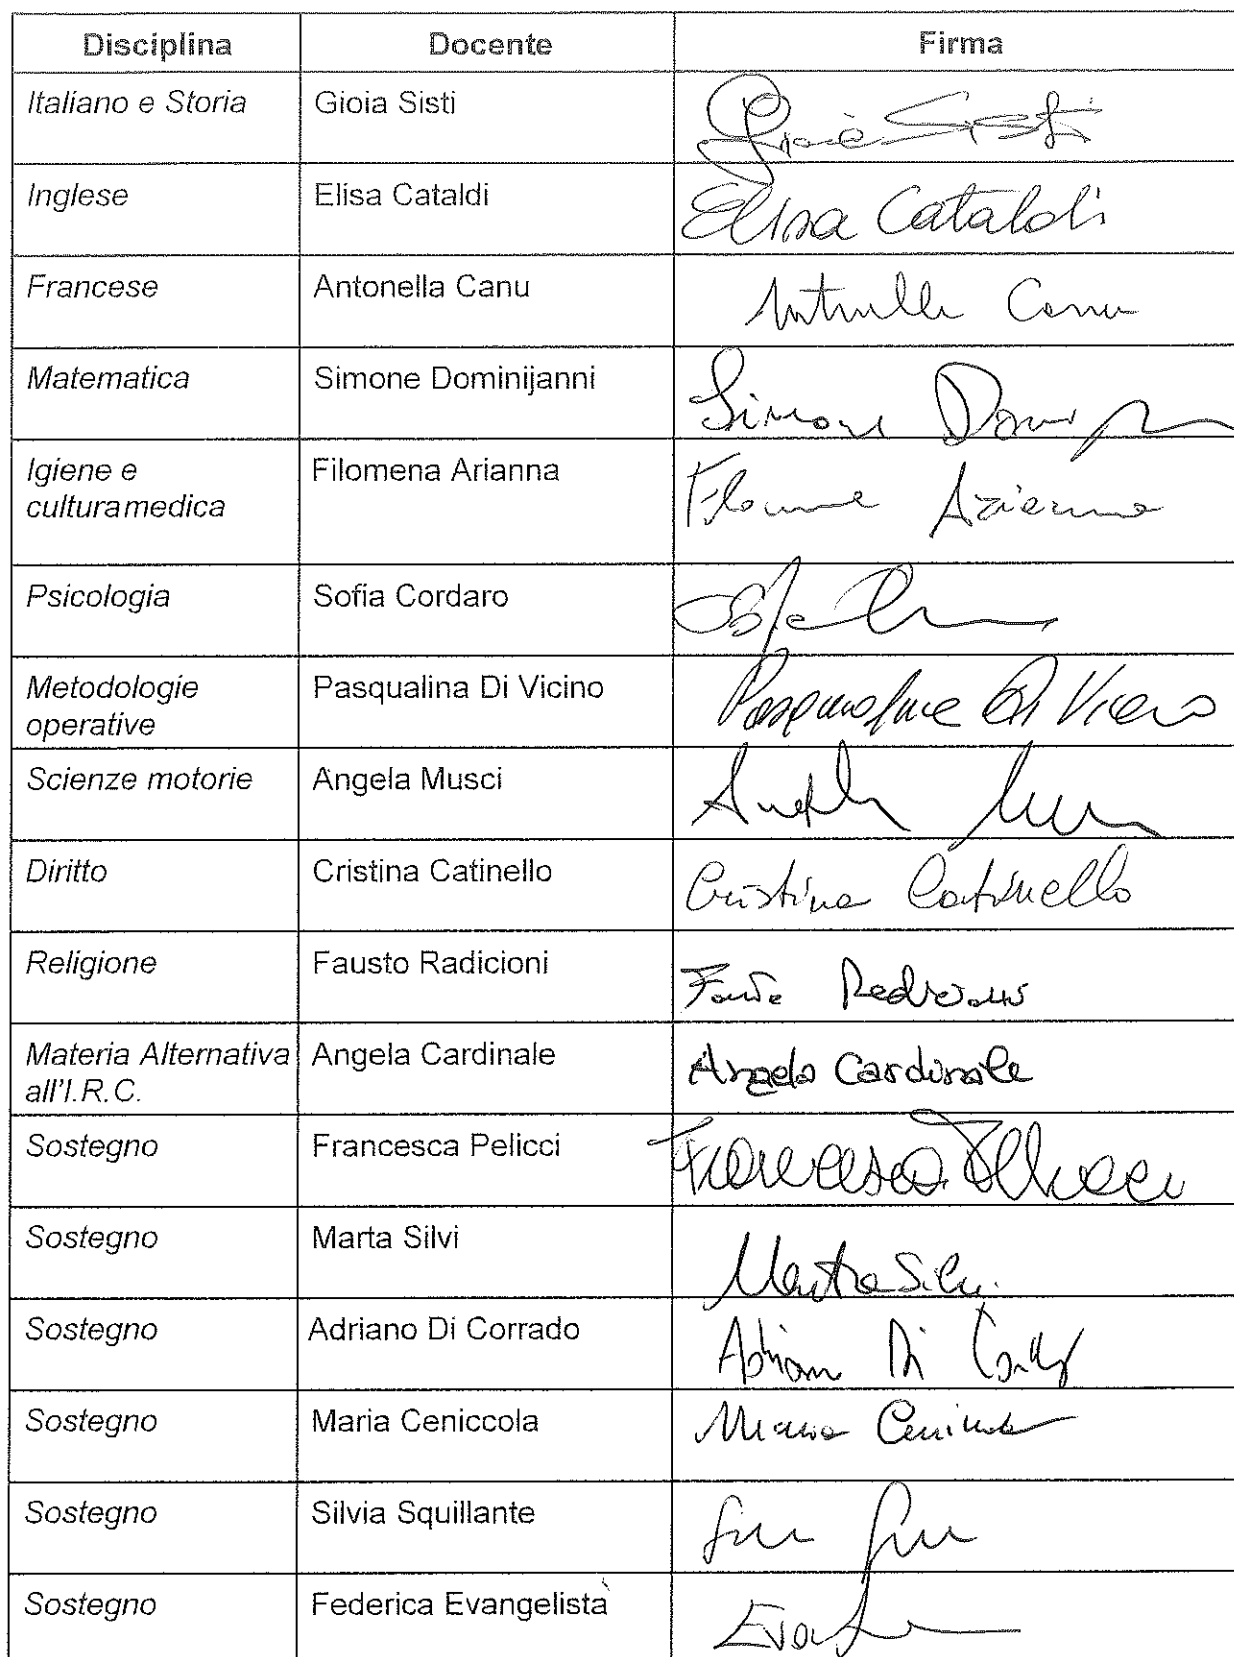 Disciplina Docente Firma
Italiano e Storia Gioia Sisti Gioia Sisti
Inglese Elisa Cataldi Elisa Cataldi
Francese Antonella Canu Antonella Canu
Matematica Simone Dominijanni Simone
Igiene e Filomena Arianna Filomena Arianna
culturamedica
Psicologia Sofia Cordaro Sofia
Metodologie Pasqualina Di Vicino Pasqualina Di Vicino
operative
Scienze motorie Angela Musci Angela
Diritto Cristina Catinello Cristina Catinello
Religione Fausto Radicioni Fausto Radicioni
Materia Alternativa Angela Cardinale Angela Cardinale
all'I.R.C.
Sostegno Francesca Pelicci Francesca Pelicci
Sostegno Marta Silvi Marta Silvi
Sostegno Adriano Di Corrado Adriano Di
Sostegno Maria Ceniccola Maria
Sostegno Silvia Squillante
Sostegno Federica Evangelista